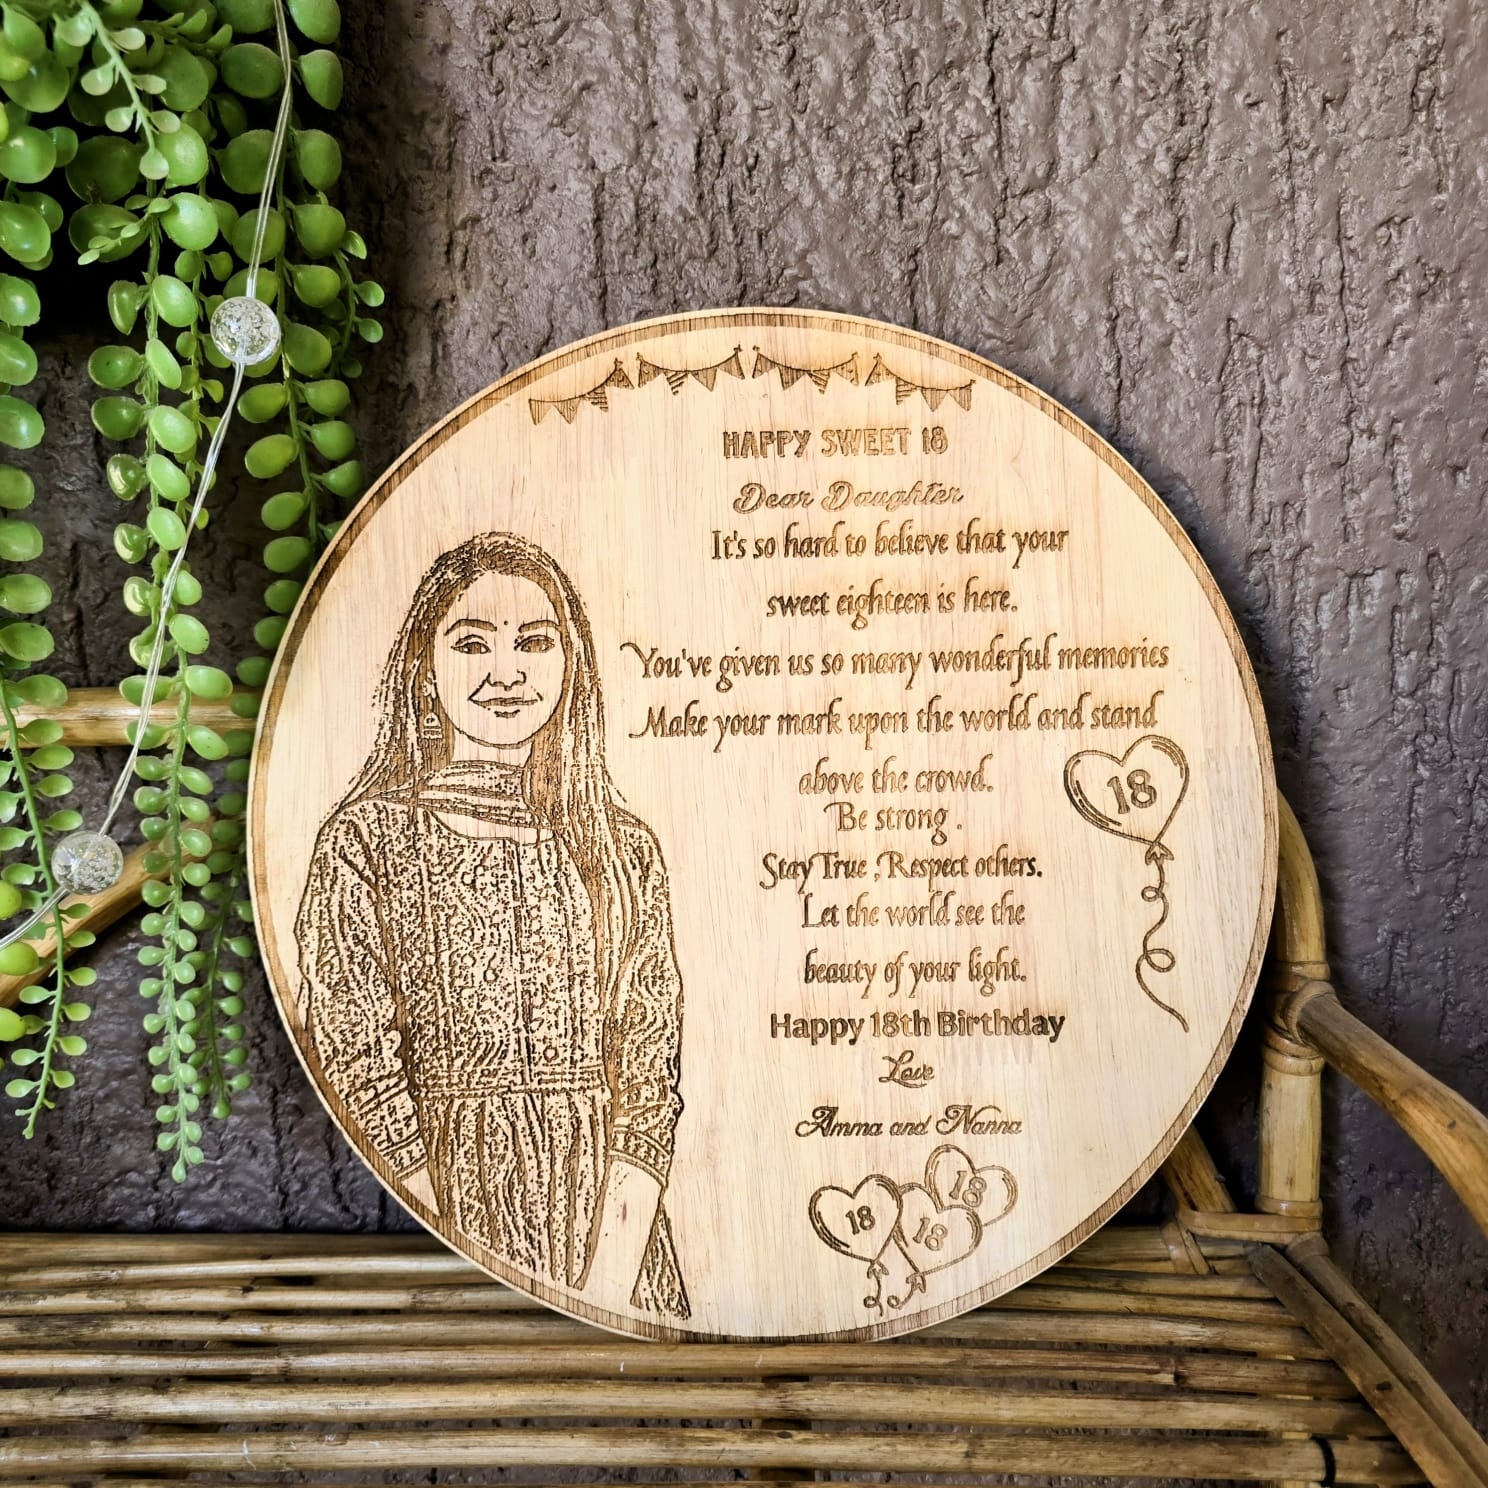 HAPPY SWEET 18
Dear Daughter
It's so hard to believe that your
sweet eighteen is here.
You've given us so many wonderful memories
Make your mark upon the world and stand
above the crowd.
Be strong .
Stay True , Respect others.
Let the world see the
beauty of your light.
Happy 18th Birthday
Love
Amma and Nanna
18
18
18
18